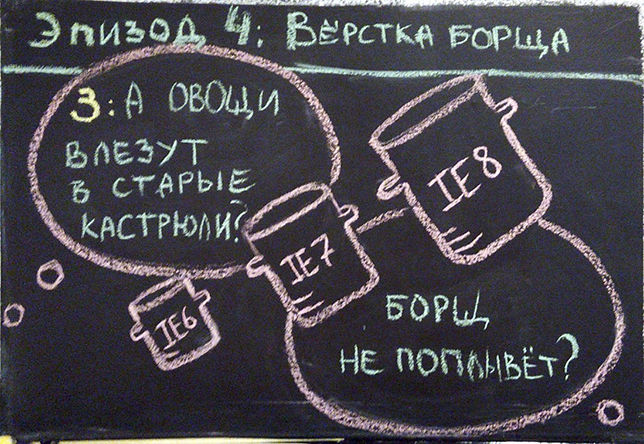 Эпизод 4: Вёрстка борща
З: А овощи
влезут
в старые
кастрюли?
IE8
IE7
IE6
Борщ
не поплывёт?